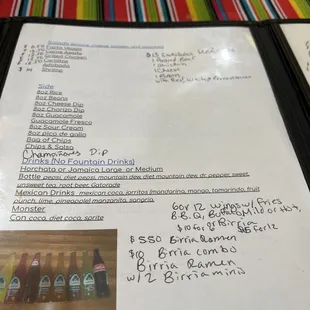 Fajita Veggie
Carne Asada
Grilled Chicken
Carnitas
Adobada
Shrimp
1 Ground Beef
1 chicken
1 Cheese
1 Bean
Side
8oz Rice
8oz Beans
8oz Cheese Dip
8oz Chorizo Dip
8oz Guacamole
Guacamole Fresco
8oz Sour Cream
8oz pico de gallo
Bag of Chips
Chips & Salsa
Dip
Drinks (No Fountain Drinks)
Horchata or Jamaica Large, or Medium
Bottle pepsi, diet pepsi, mountain dew, diet mountain dew, dr. pepper, sweet,
unsweet tea, root beer, Gatorade
Mexican Drinks mexican coco, jarritos (mandarina, mango, tamarindo, fruit
punch, lime, pineapple) manzanita, sangria,
Monster
Can coca, diet coca, sprite
6 or 12 wings w/ Fries
B.B.Q, Buffalo Mild or Hot,
or Birria
$10 for 6 $15 for 12
$5.50 Birria Ramen
$10 Birria combo
Birria Ramen
w/ 2 Birria minis